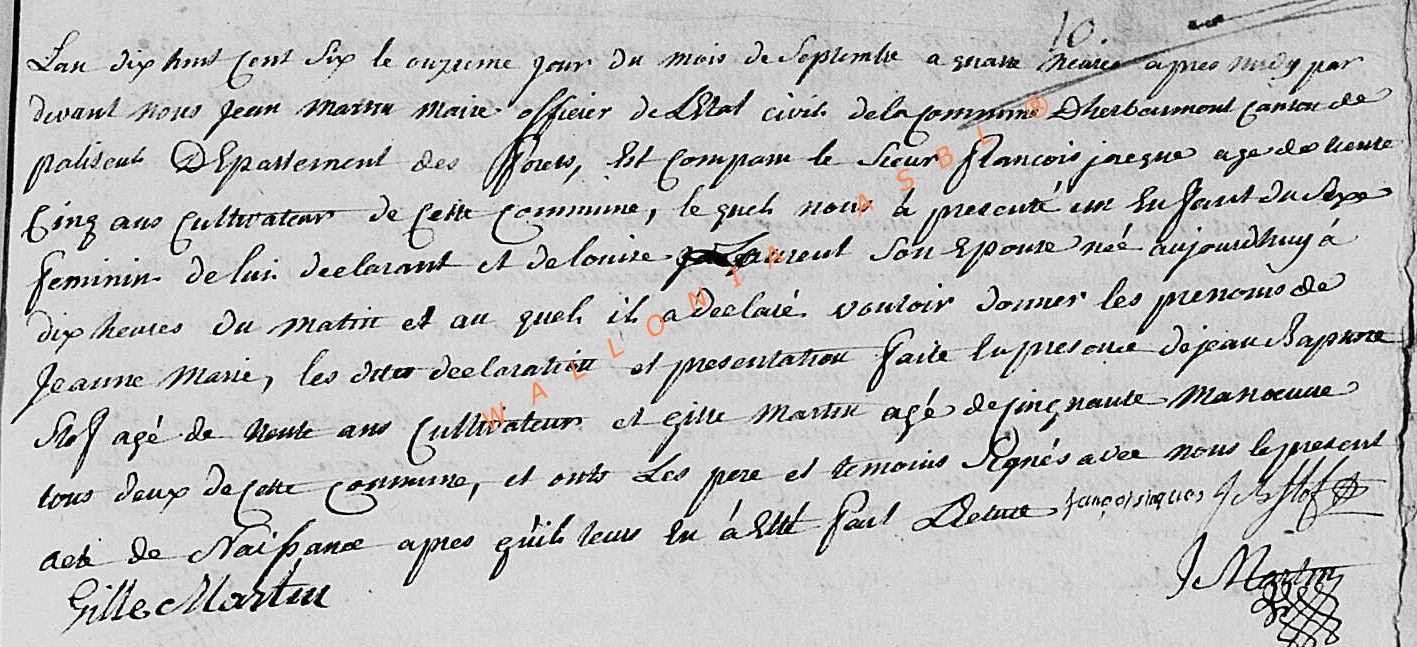 10.
L'an dix huit Cent Six le onzieme jour du mois de Septembre a quatre heures apres midy par
devant nous Jean Martin Maire officier de L'Etat civil de la Commune D'herbeumont Canton de
paliseul DEpartement des fforets, Est Comparu le Sieur François jacque age de trente
Cinq ans Cultivateur de Cette Commune, le quel nous à presenté un Enfant du Sexe
feminin de lui declarant et de louise Laurent Son Epouse née aujourdhuy à
dix heures du matin et au quel il a declaré vouloir donner les prenoms de
Jeanne Marie, les dites declaration et presentation faite En presence de jean Baptiste
Stof agé de trente ans Cultivateur et Gille Martin agé de Cinquante Manoeuvre
tous deux de Cette Commune, et onts Les pere et temoins Signés avec nous le present
acte de Naissance apres qu'il leurs En à Eté fait Lecture françois jacques J B Stof
Gille Martin
J Martin
WALLONIA ASBL ®